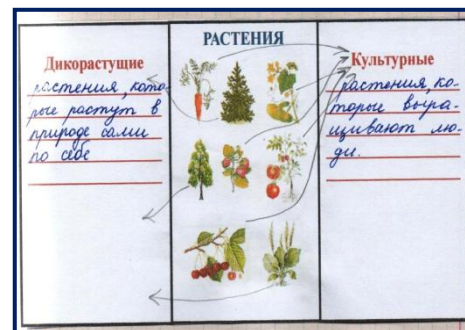 РАСТЕНИЯ
Дикорастущие
растения, кото-
рые растут в
природе сами
по себе
Культурные
растения, ко-
торые выра-
щивают лю-
ди.